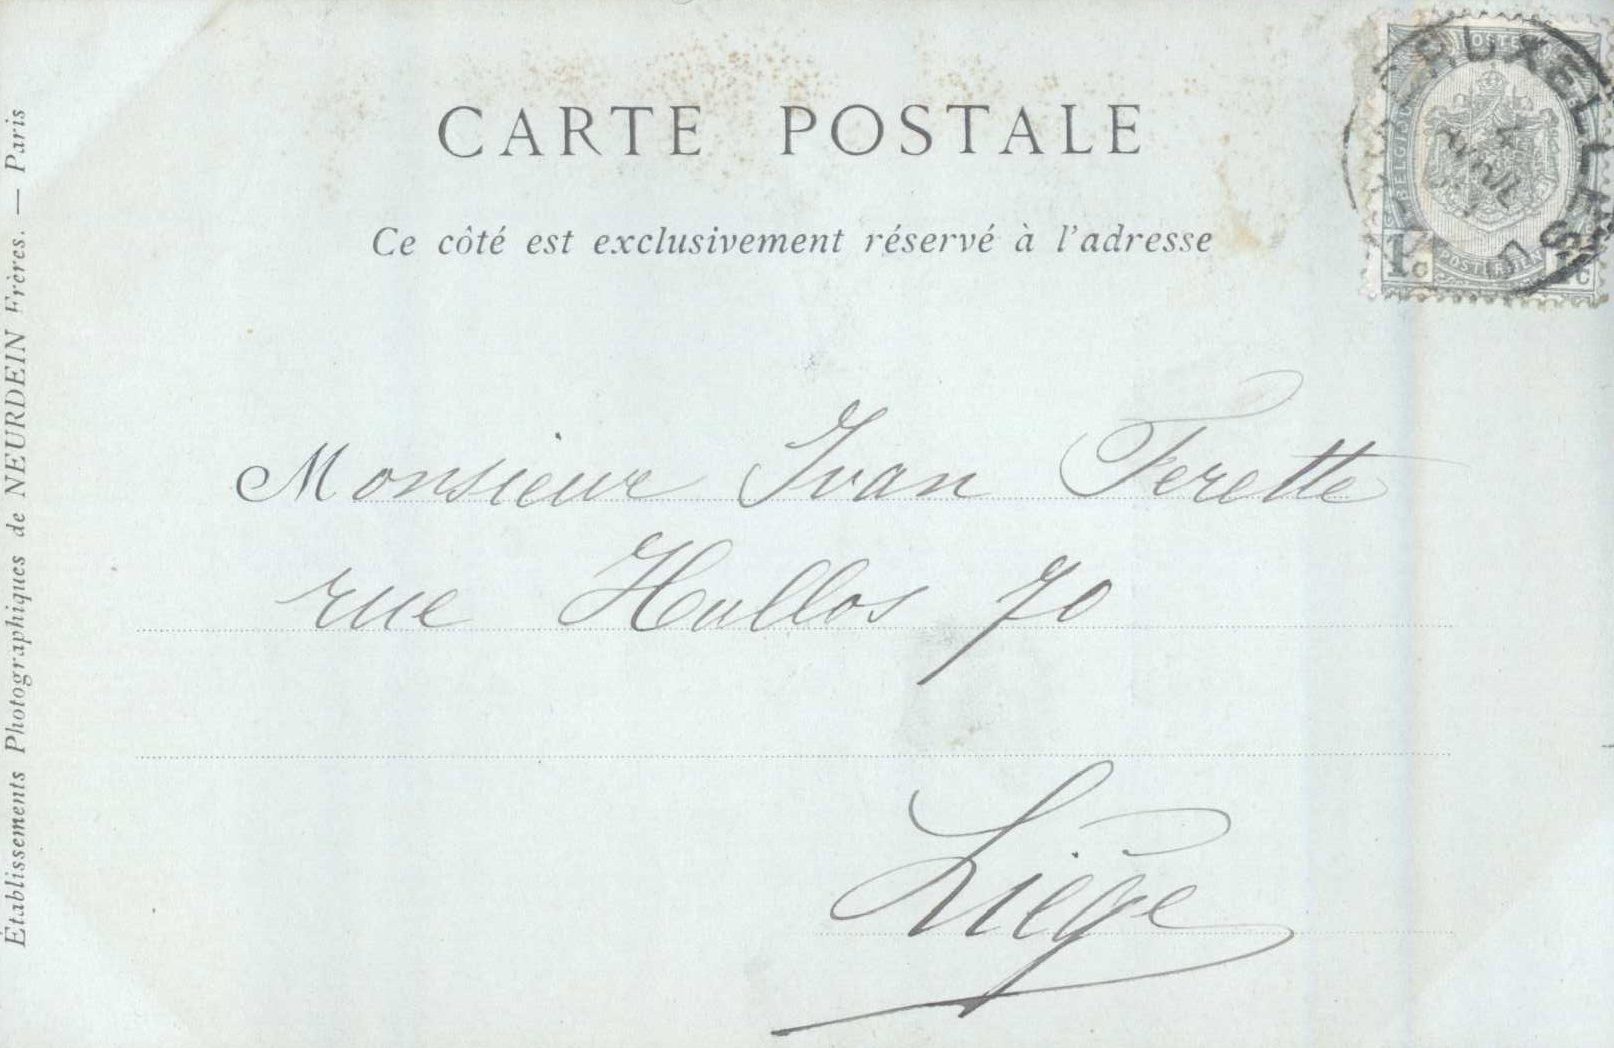 CARTE POSTALE
Ce côté est exclusivement réservé à l'adresse
BRUXELLES
1c 1c
Monsieur Ivan Ferette
rue Hullos 70
Liège
Établissements Photographiques de NEURDEIN Frères. — Paris